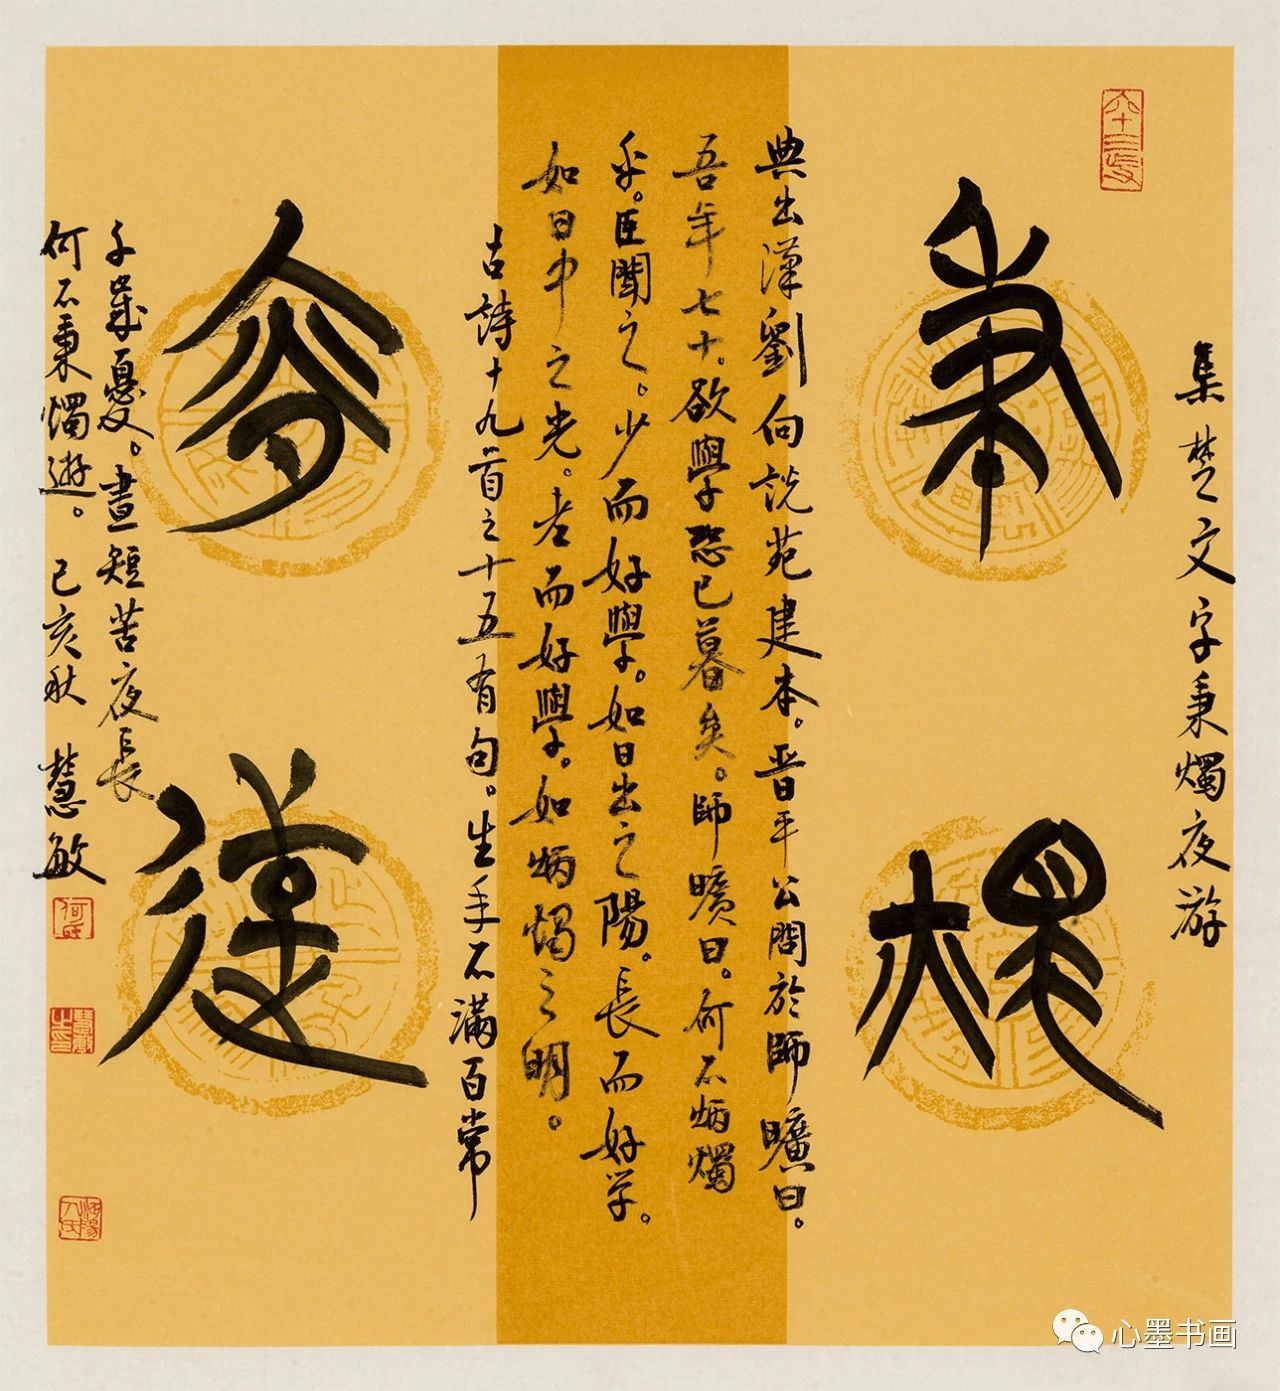 集楚文字秉燭夜游
秉燭
夜遊
典出漢劉向説苑建本。晋平公問於師曠曰。
吾年七十。欲學恐已暮矣。師曠曰。何不炳燭
乎。臣聞之。少而好學。如日出之陽。長而好学。
如日中之光。老而好學。如炳燭之明。
古詩十九首之十五有句。生年不滿百常
千歲憂。晝短苦夜長
何不秉燭遊。己亥秋 慧敏
心墨书画